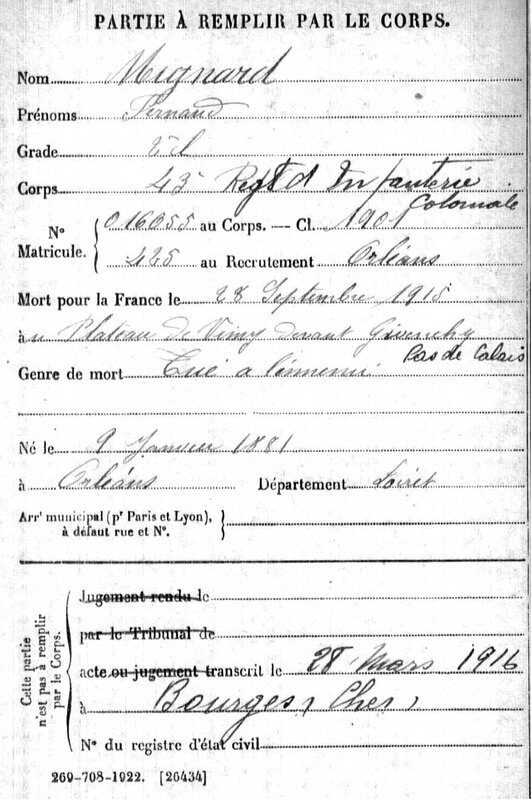 PARTIE À REMPLIR PAR LE CORPS.
Nom Mignard
Prénoms Fernand
Grade
Corps 43e Regt d'Infanterie
Coloniale
N° Matricule. { 016055 au Corps. — Cl. 1901
425 au Recrutement Orléans
Mort pour la France le 28 Septembre 1915
à u Plateau de Vimy devant Givenchy
Pas de Calais
Genre de mort Tué à l'ennemi
Né le 9 Janvier 1881
à Orléans Département Loiret
Arrt municipal (pr Paris et Lyon),
à défaut rue et N°.
Cette partie n'est pas à remplir par le Corps.
Jugement rendu le
par le Tribunal de
acte ou jugement transcrit le 28 Mars 1916
à Bourges (Cher)
N° du registre d'état civil
269-708-1922. [26434]